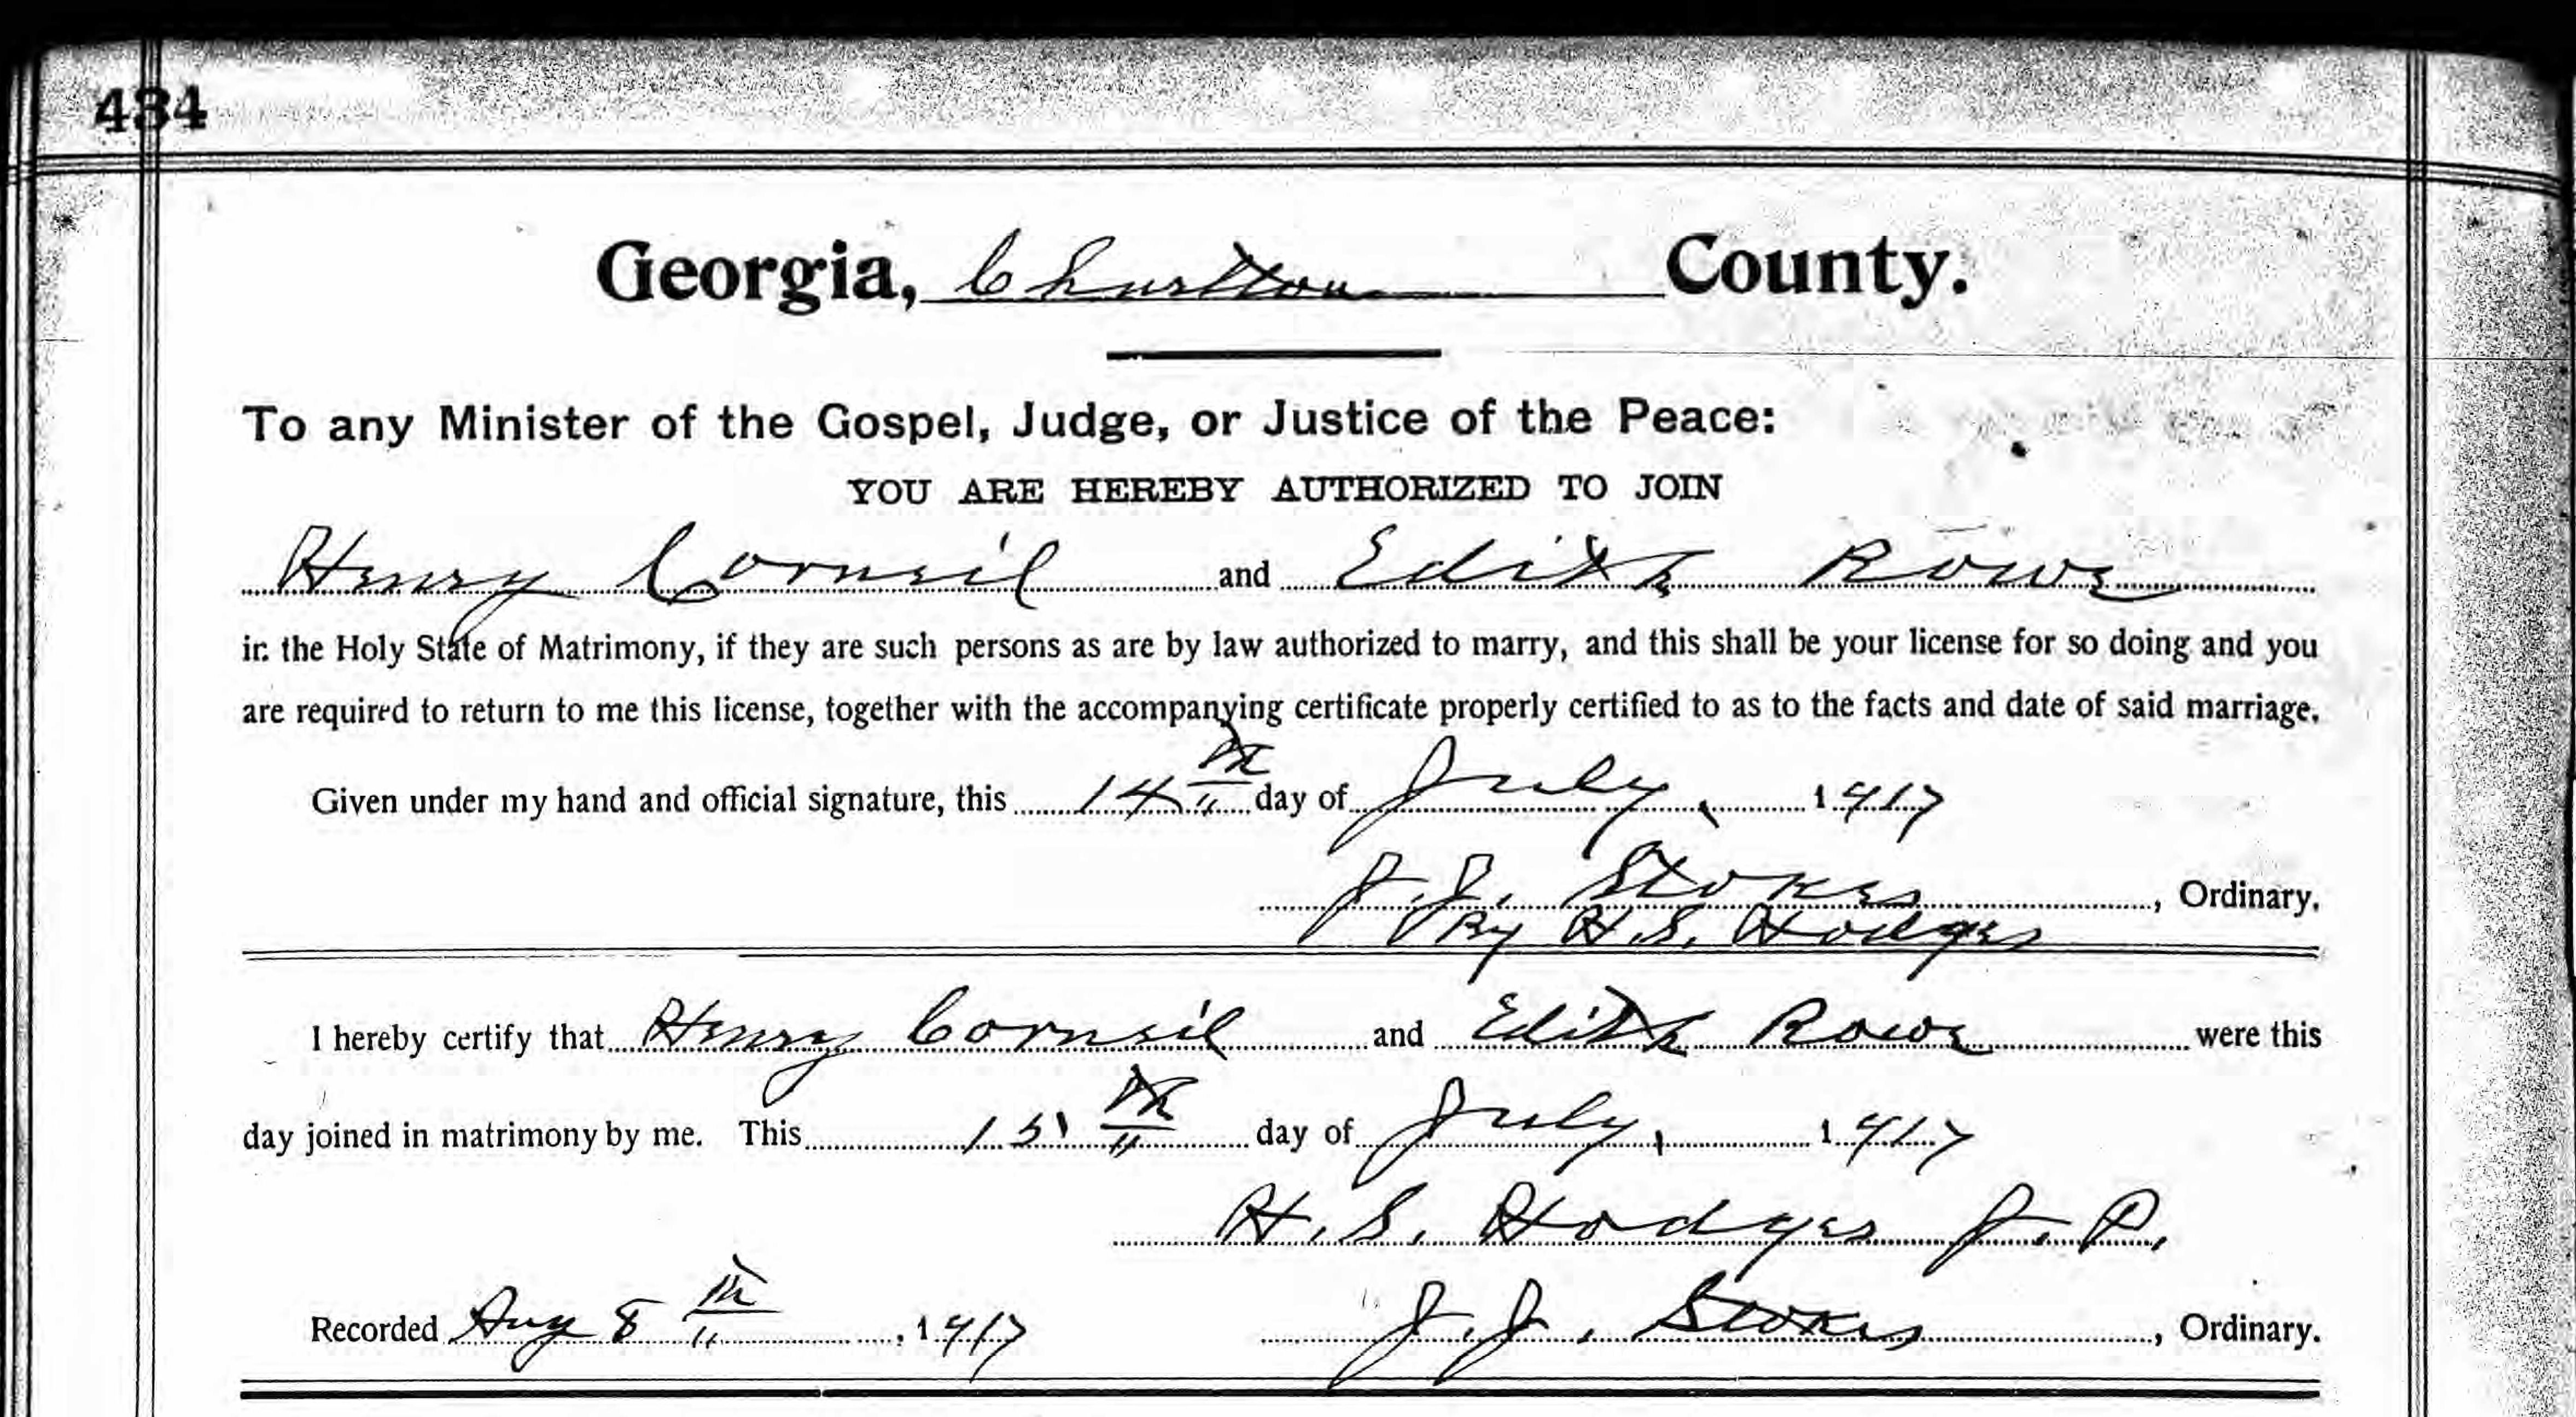 434
Georgia, Charlton County.
To any Minister of the Gospel, Judge, or Justice of the Peace:
YOU ARE HEREBY AUTHORIZED TO JOIN
Henry Corneil and Edith Rowe
in the Holy State of Matrimony, if they are such persons as are by law authorized to marry, and this shall be your license for so doing and you
are required to return to me this license, together with the accompanying certificate properly certified to as to the facts and date of said marriage.
Given under my hand and official signature, this 14th day of July, 1917
J. J. Stokes, Ordinary.
By H. S. Hodges
I hereby certify that Henry Corneil and Edith Rowe were this
day joined in matrimony by me. This 15th day of July, 1917
H. S. Hodges J. P.
Recorded Aug 8th, 1917 J. J. Stokes, Ordinary.